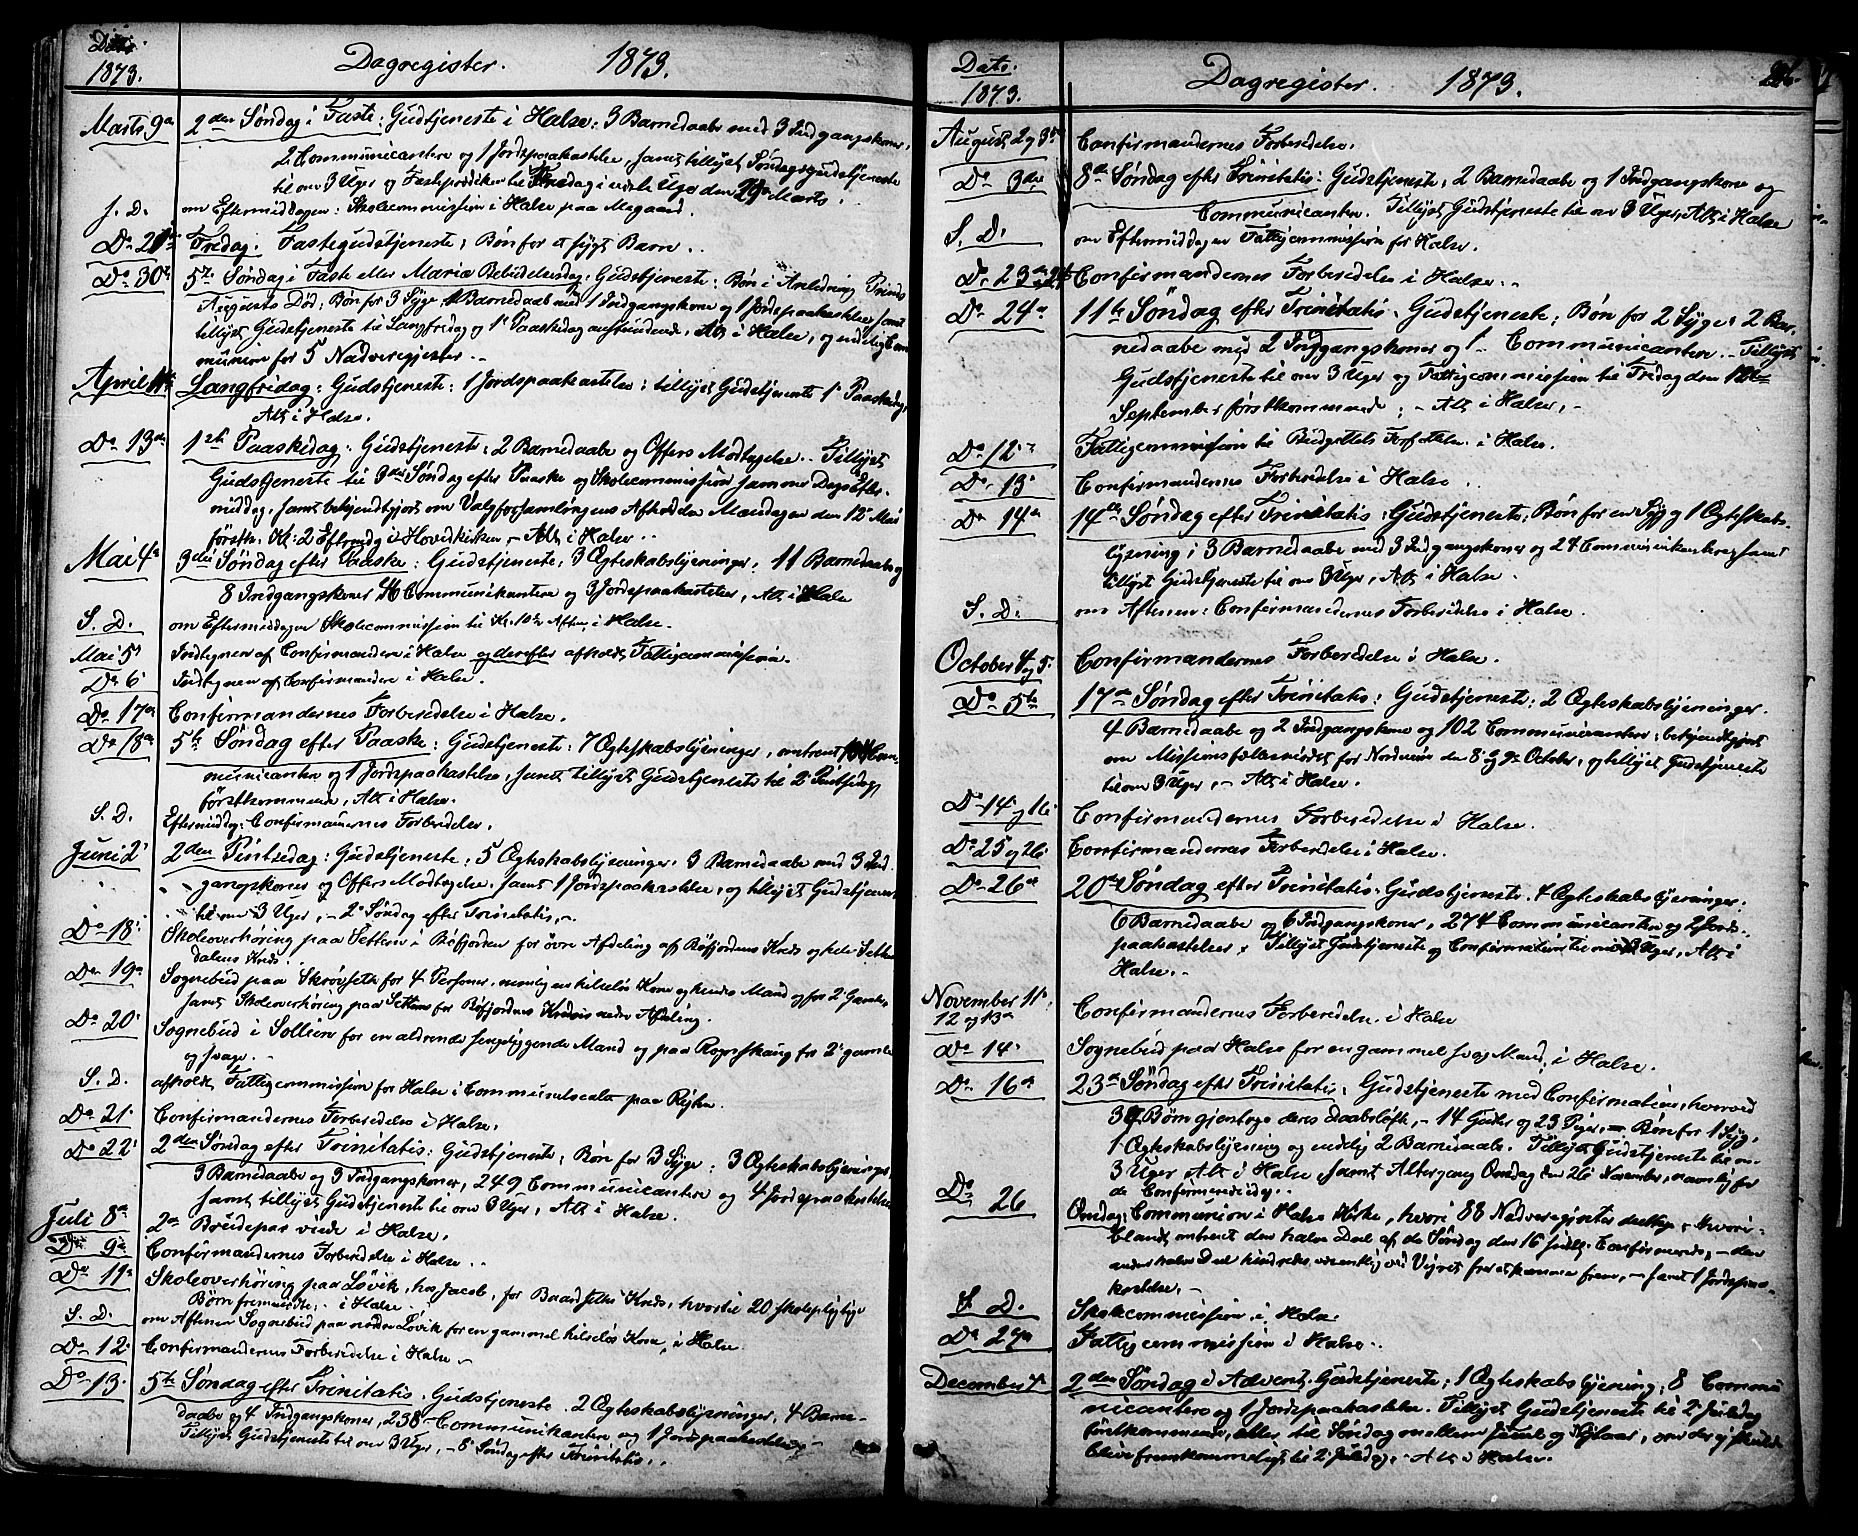 Dato 1873.
Dagregister. 1873.
Marts 9de 2den Søndag i Faste: Gudstjeneste i Halse: 3 Barnedaabe med 3 Indgangskoner,
2 Communicantere og 1 Jordspaakastelse, samt tillyst Søndagsgudstjeneste
til om 3 Uger og Fasteprædiken til Fredag i næste Uge den Marts.
S. D. om Eftermiddagen: Skolecommission i Halse paa Megaard.
Do 21de Fredag: Fastegudstjeneste; Bøn for et sygt Barn.
Do 30de 5te Søndag i Faste eller Mariæ Bebudelsesdag: Gudstjeneste: Bøn i Anledning Prinds
Augusts Død; Bøn for 3 Syge, 1 Barnedaab med 1 Indgangskone og 1 Jordspaakastelse, samt
tillyst Gudstjeneste til Langfredag og 1ste Paaskedag Alt i Halse, og endelig Com-
munion for 5 Nadvergjester.
April 11te Langfridag: Gudstjeneste: 1 Jordspaakastelse; tillyst Gudstjeneste 1ste Paaskedag,
Alt i Halse.
Do 13de 1ste Paaskedag: Gudstjeneste; 2 Barnedaabe og Offers Modtagelse. Tillyst
Gudstjeneste til 3die Søndag efter Paaske og Skolecommission samme Dags Efter-
middag, samt bekjendtgjort om Valgforsamlingens Afholdelse Mandagen den 12te Mai
førstk. Kl: 2 Eftmdg i Hovedkirken, Alt i Halse.
Mai 4de 3die Søndag efter Paaske: Gudstjeneste, 3 Ægteskabslysninger, 11 Barnedaabe og
8 Indgangskoner, Communikantere og 3 Jordspaakastelser, Alt i Halse
S. D. om Eftermiddagen Skolecommission til Kl. 10 Aften, i Halse.
Mai 5te Indtegnen af Confirmandere i Halse og derefter afholdt Fattigcommission.
Do 6te Indtegnen af Confirmandere i Halse.
Do 17de Confirmandernes Forberedelse i Halse.
Do 18de 5te Søndag efter Paaske: Gudstjeneste: 7 Ægteskabslysninger, omtrent Com-
municantere og 1 Jordspaakastelse, samt tillyst Gudstjeneste til 2den Pintsedag
førstkommende, Alt i Halse.
S. D. Eftermiddag: Confirmandernes Forberedelse.
Juni 2den 2den Pintsedag: Gudstjeneste; 5 Ægteskabslysninger, 3 Barnedaabe med 3 Ind-
gangskoner og Offers Modtagelse, samt 1 Jordspaakastelse, og tillyst Gudstjeneste
til om 3 Uger, 2den Søndag efter Trinitatis.
Do 18de Skoleoverhøring paa Settem i Bøfjorden for øvre Afdeling af Bøfjordens Kreds og hele Settem-
dalens Kreds.
Do 19de Sognebud paa Skrøvseth for 4 Personer, nemlig en helseløs Kone og hendes Mand og for 2 Gamle,
samt Skoleoverhøring paa Settem for Bøfjordens Kreds nedre Afdeling.
Do 20de Sognebud i Sollien for en aldrende sengeliggende Mand og paa Rognskaug for 2de gamle
og svage.
S. D. afholdt Fattigcommission for Halse i Communelocalet paa Røkke.
Do 21de Confirmandernes Forberedelse i Halse.
Do 22de 2den Søndag efter Trinitatis: Gudstjeneste; Bøn for 3 Syge; 3 Ægteskabslysninger,
3 Barnedaabe og 3 Indgangskoner, 249 Communicantere og 4 Jordspaakastelser
samt tillyst Gudstjeneste til om 3 Uger, Alt i Halse.
Juli 8de 2de Brudepar viede i Halse.
Do 9de Confirmandernes Forberedelse i Halse.
Do 11te Skoleoverhøring paa Løvik, hos Jacob, for Baardsetles Kreds, hvortil 20 skolepligtige
Børn fremmødte, i Halse.
S. D. om Aftenen Sognebud paa nedre Løvik for en gammel helseløs Kone, i Halse.
Do 12te Confirmandernes Forberedelse i Halse.
Do 13de 5te Søndag efter Trinitatis. Gudstjeneste. 2 Ægteskabslysninger, 4 Barne-
daabe og 4 Indgangskoner, 238 Communikantere og 1 Jordspaakastelse,
Tillyst Gudstjeneste til om 3 Uger, 8de Søndag efter Trinitatis.
Dato. 1873.
Dagregister. 1873.
August 2 og 3de Confirmandernes Forberedelse.
Do 3die 8de Søndag efter Trinitatis: Gudstjeneste, 2 Barnedaabe og 1 Indgangskone og
Communicantere. Tillyst Gudstjeneste til om 3 Uger, Alt i Halse
S. D. om Eftermiddagen Fattigcommission for Halse.
Do 23de og 24de Confirmandernes Forberedelse i Halse.
Do 24de 11te Søndag efter Trinitatis. Gudstjeneste; Bøn for 2 Syge; 2 Bar-
nedaabe med 2 Indgangskoner og 1 Communicantere. Tillyst
Gudstjeneste til om 3 Uger og Fattigcommission til Fredag den 12te
September førstkommende; Alt i Halse.
Do 12te Fattigcommission til Budgettets Forfattelse i Halse.
Do 13de Confirmandernes Forberedelse i Halse.
Do 14de 14de Søndag efter Trinitatis: Gudstjeneste, Bøn for en Syg, 1 Ægteskabs-
lysning, 3 Barnedaabe med 3 Indgangskoner og 24 Communikantere, samt
tillyst Gudstjeneste til om 3 Uger, Alt i Halse.
S. D. om Aftenen: Confirmandernes Forberedelse i Halse.
October 4 og 5te Confirmandernes Forberedelse i Halse.
Do 5te 17de Søndag efter Trinitatis: Gudstjeneste: 2 Ægteskabslysninger.
4 Barnedaabe og 2 Indgangskone og 102 Communicantere; bekjendtgjort
om Missionsfællesmødet for Nordmøre den 8 og 9de October, og tillyst Gudstjeneste
til om 3 Uger, Alt i Halse.
Do 14de og 16de Confirmandernes Forberedelse i Halse.
Do 25 og 26 Confirmandernes Forberedelse i Halse.
Do 26de 20de Søndag efter Trinitatis. Gudstjeneste. 4 Ægteskabslysninger.
6 Barnedaabe og 6 Indgangskoner, 274 Communicantere og 2 Jords-
paakastelser. Tillyst Gudstjeneste og Confirmation til om 3 Uger, Alt i
Halse.
November 11te, 12 og 13de Confirmandernes Forberedelse i Halse
Do 14de Sognebud paa Halse for en gammel svag Mand, i Halse.
Do 16de 23de Søndag efter Trinitatis: Gudstjeneste med Confirmation, hvorved
37 Børn gjentoge deres Daabsløfte, 14 Gutter og 23 Piger, Bøn for 1 Syg,
1 Ægteskabslysning og endelig 2 Barnedaabe. Tillyst Gudstjeneste til om
3 Uger Alt i Halse, samt Altergang Onsdag den 26de November, navnlig for
de Confirmerede.
Do 26 Onsdag: Communion i Halse Kirke, hvori 88 Nadvergjester deeltog, hvori-
blandt omtrent den halve Deel af de Søndag den 16 Confirmerede, den
anden halve Deel hindredes væsentlig ved Veiret fra at komme frem, samt 1 Jordspaa-
kastelse.
S. D. Skolecommission i Halse.
Do 27de Fattigcommission i Halse.
December 7de 2den Søndag i Advent. Gudstjeneste; 1 Ægteskabslysning; 8 Commu-
nicantere og 1 Jordspaakastelse. Tillyst Gudstjeneste til 2den Juledag
førstkommende, eller til Søndag mellem Juul og Nytaar, om der ej skulde
blive fremkommeligt til 2den Juledag. Alt i Halse.